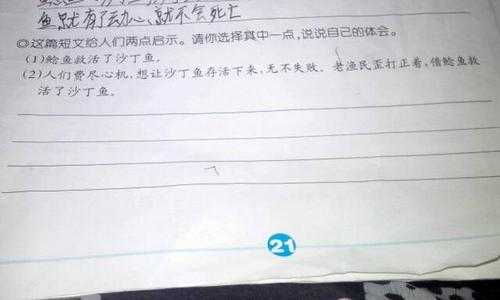 鱼就有了动心、就不会死亡
◎这篇短文给人们两点启示。请你选择其中一点,说说自己的体会。
(1)鲶鱼救活了沙丁鱼。
(2)人们费尽心机,想让沙丁鱼存活下来,无不失败。老渔民歪打正着,借鲶鱼救
活了沙丁鱼。
21